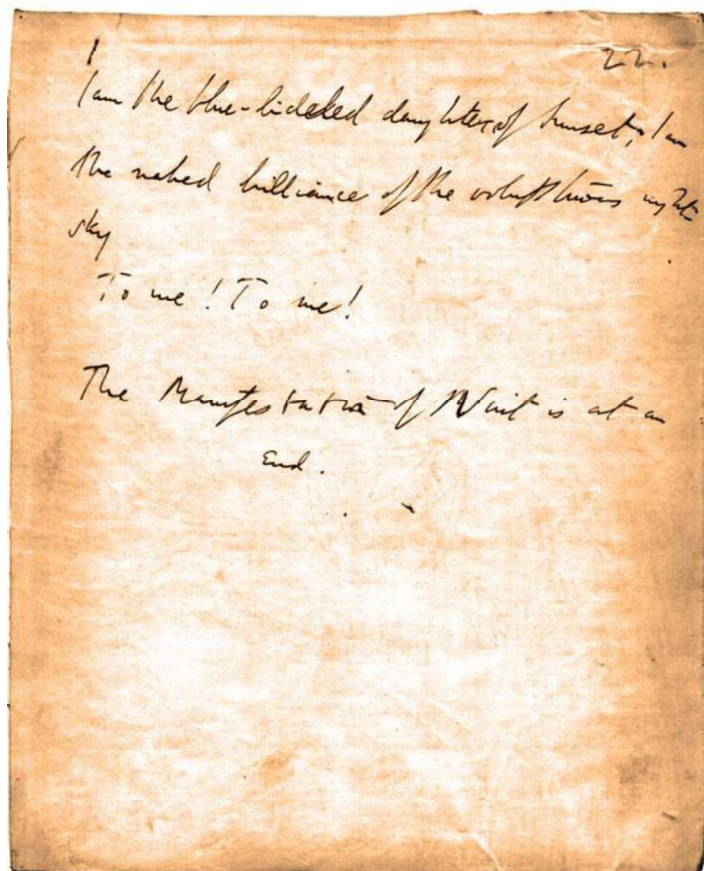 1 22.
I am the blue-lidded daughter of Sunset; I am
the naked brilliance of the voluptuous night-
sky
To me! To me!
The Manifestation of Nuit is at an
End.